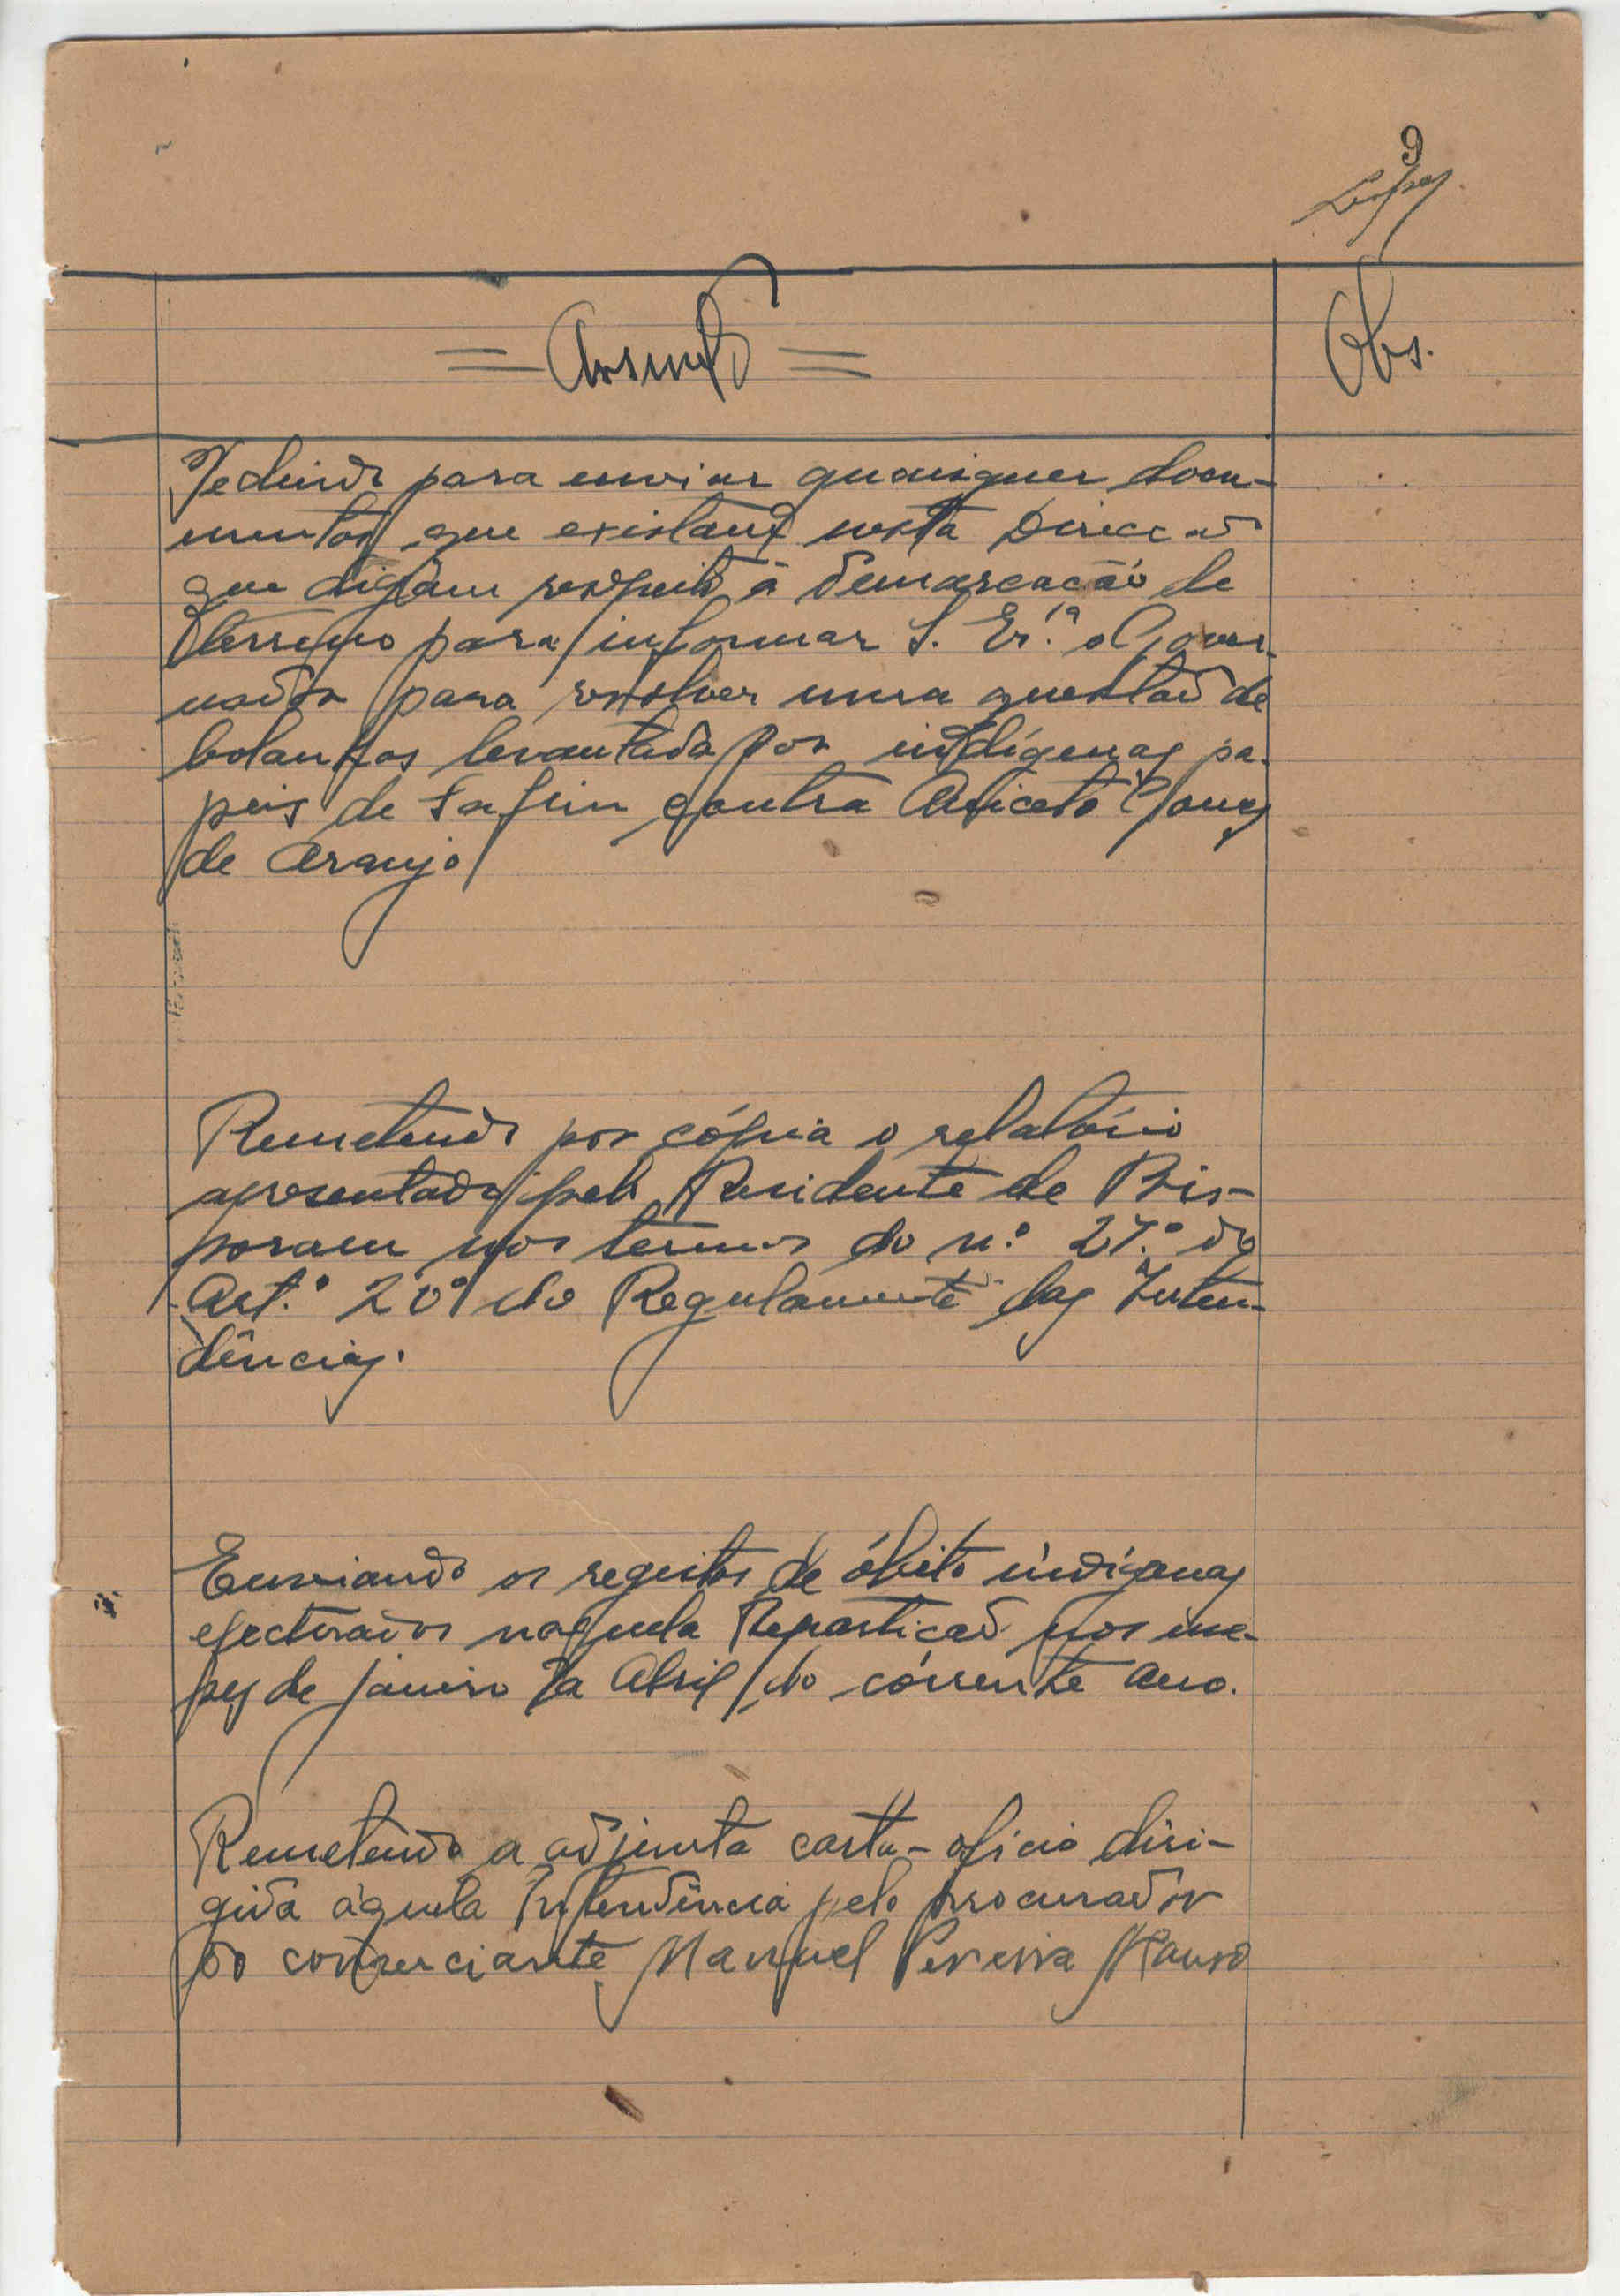 9
Lopes
= Assunto =
Obs.
Pedindo para enviar quaisquer docu-
mentos que existam nesta Direccão
que digam respeito á demarcação de
terreno para informar S. Ex.ª o Gover-
nador para resolver uma questão de
bolanhas levantada por indígenas pa-
peis de Safim contra Aniceto Gomes
de Araujo
Remetendo por cópia o relatório
apresentado pelo Residente de Bis-
soram nos termos do n.º 27.º do
Art.º 20º do Regulamento das Inten-
dências.
Enviando os registos de óbito indígenas
efectuados naquela Repartição nos me-
zes de janeiro a Abril do corrente ano.
Remetendo a adjunta carta-oficio diri-
gida áquela Intendência pelo procurador
do comerciante Manuel Pereira